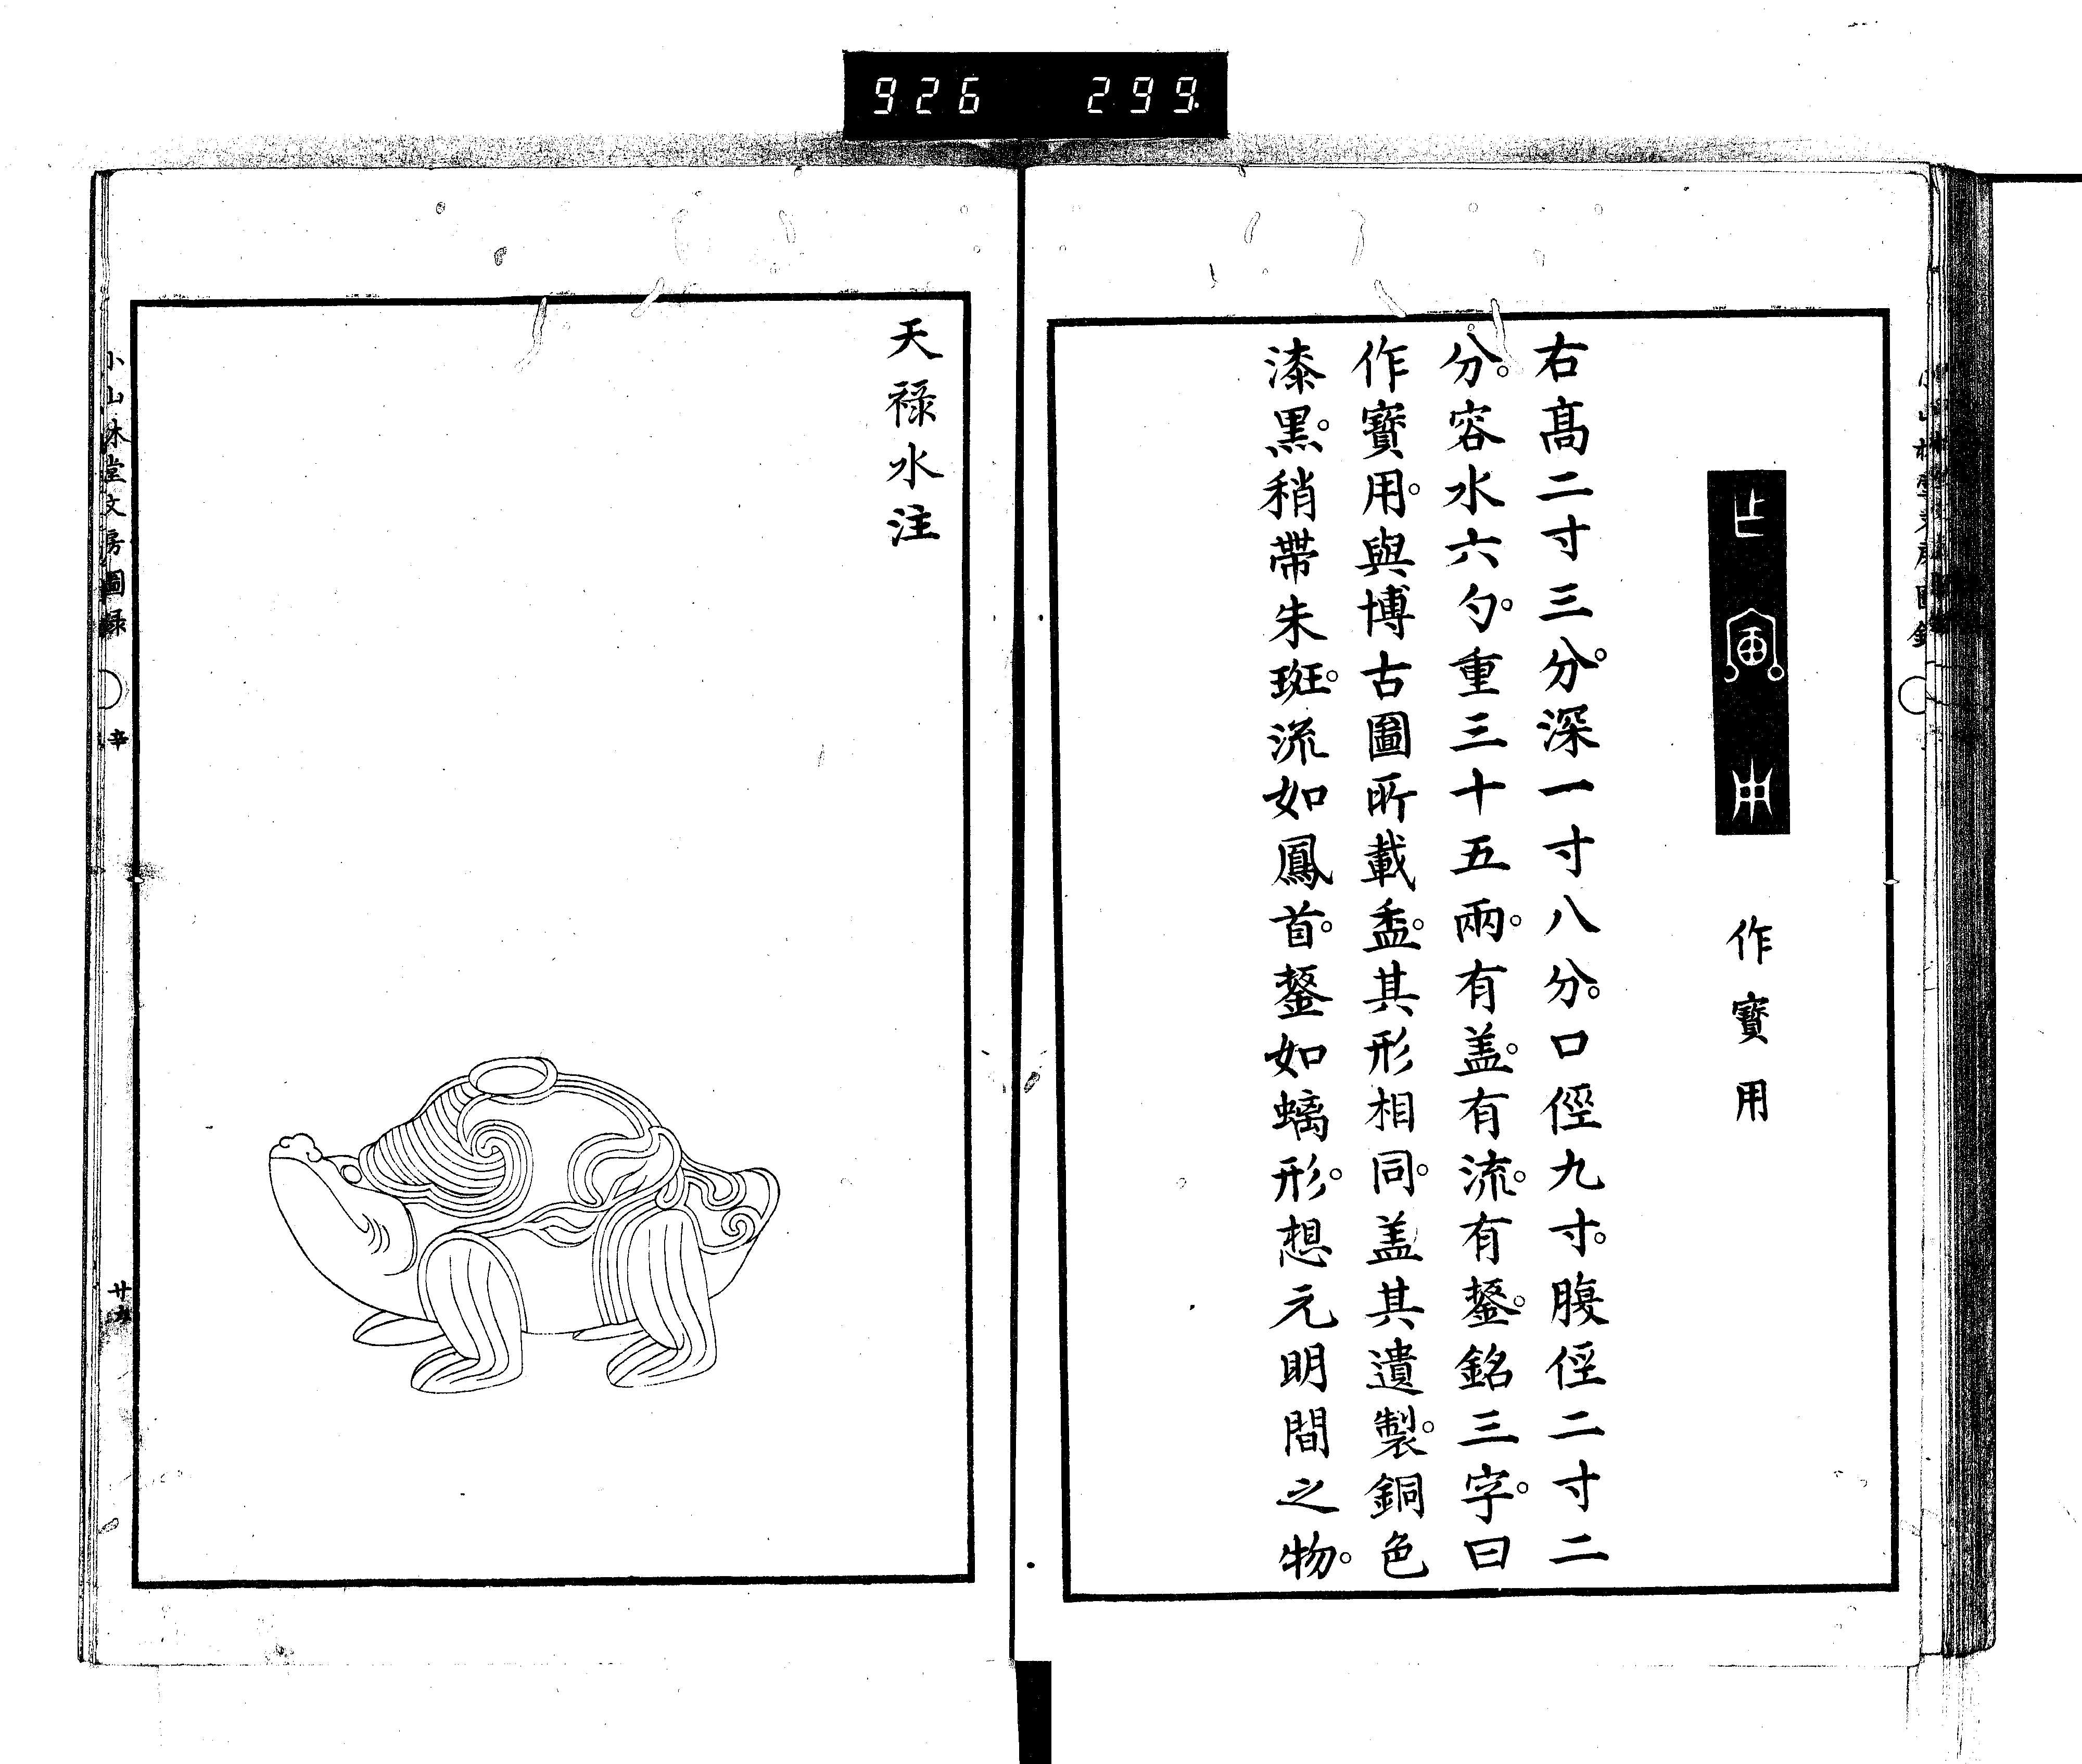 926 299
作寶用
右高二寸三分。深一寸八分。口徑九寸。腹徑二寸二
分。容水六勺。重三十五兩。有盖。有流。有鋬。銘三字。曰
作寶用。與博古圖所載盉。其形相同。盖其遺製。銅色
漆黒。稍帶朱斑。流如鳳首。鋬如螭形。想元明間之物。
天祿水注
小山林堂文房圖録
辛